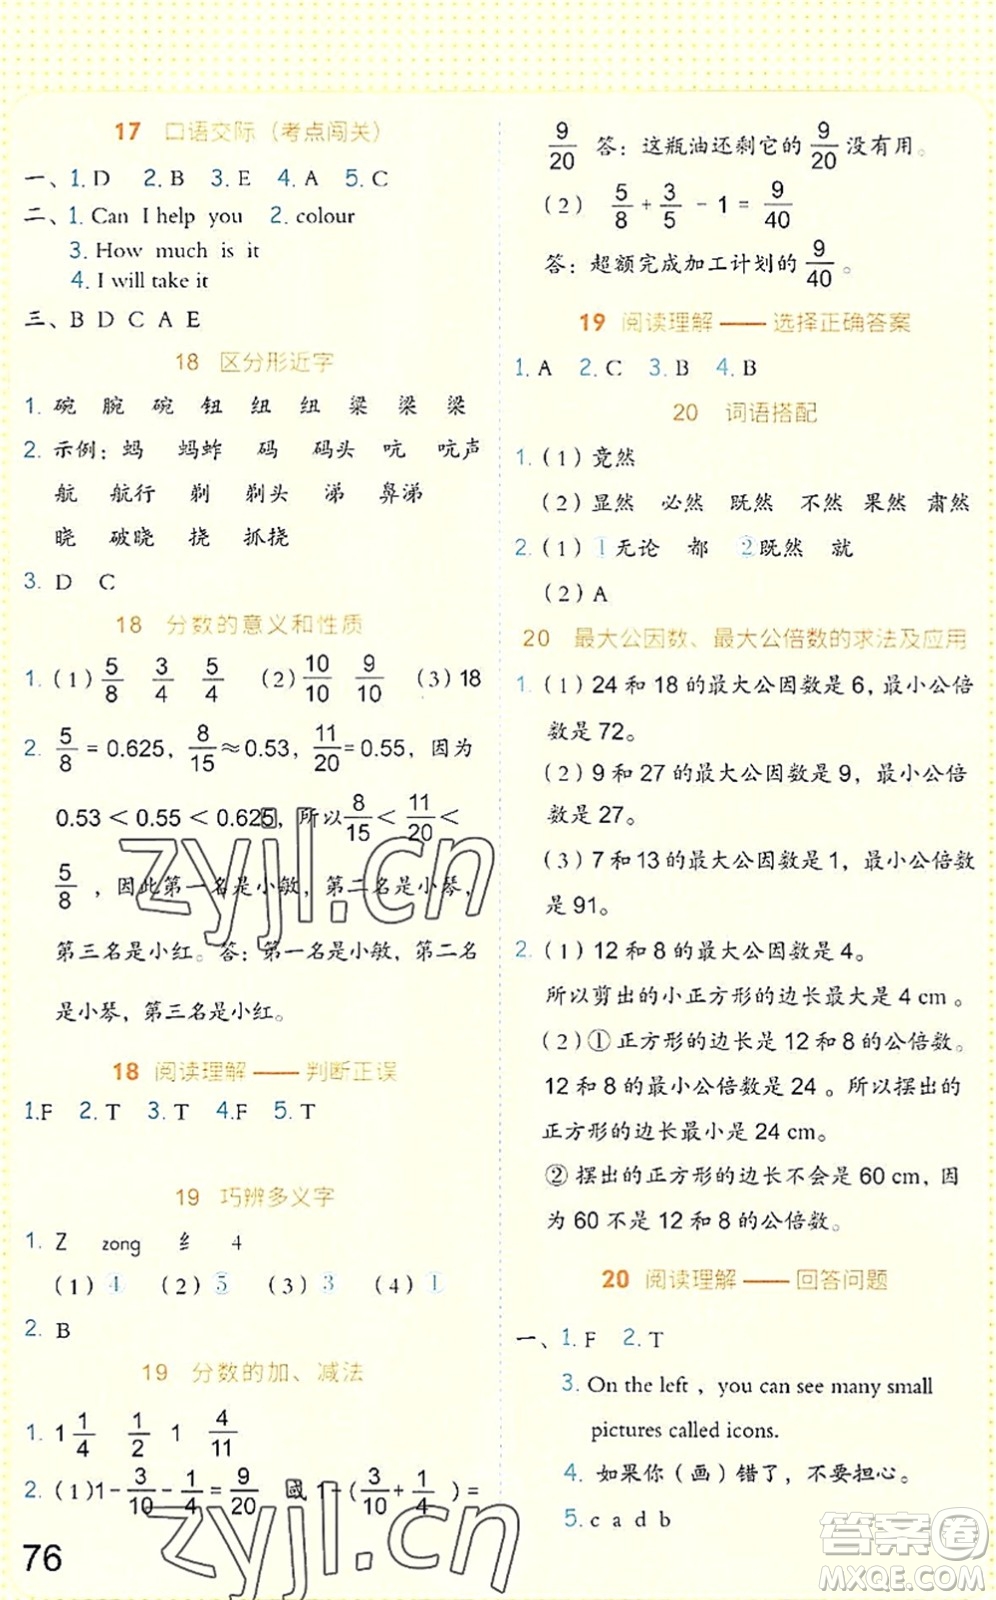 17 口语交际（考点闯关）
一、1. D 2. B 3. E 4. A 5. C
二、1. Can I help you 2. colour
3. How much is it
4. I will take it
三、B D C A E
18 区分形近字
1. 碗 腕 碗 钮 纽 纽 梁 粱 梁
2. 示例：蚂 蚂蚱 码 码头 吭 吭声
航 航行 剃 剃头 涕 鼻涕
晓 破晓 挠 抓挠
3. D C
18 分数的意义和性质
1.（1）5/8 3/4 5/4 （2）10/10 9/10 （3）18
2. 5/8 = 0.625，8/15 ≈ 0.53，11/20 = 0.55，因为
0.53 < 0.55 < 0.625，所以 8/15 < 11/20 <
5/8，因此第一名是小敏，第二名是小琴，
第三名是小红。答：第一名是小敏，第二名
是小琴，第三名是小红。
18 阅读理解——判断正误
1.F 2. T 3. T 4.F 5. T
19 巧辨多义字
1. Z zong 纟 4
（1）④ （2）⑤ （3）③ （4）①
2. B
19 分数的加、减法
1. 1 1/4 1/2 1 4/11
2.（1）1- 3/10 - 1/4 = 9/20 或 1-（3/10 + 1/4）=
76
9/20 答：这瓶油还剩它的 9/20 没有用。
（2） 5/8 + 3/5 - 1 = 9/40
答：超额完成加工计划的 9/40。
19 阅读理解——选择正确答案
1. A 2. C 3. B 4. B
20 词语搭配
1.（1）竟然
（2）显然 必然 既然 不然 果然 肃然
2.（1）①无论 都 ②既然 就
（2）A
20 最大公因数、最大公倍数的求法及应用
1.（1）24 和 18 的最大公因数是 6，最小公倍
数是 72。
（2）9 和 27 的最大公因数是 9，最小公倍
数是 27。
（3）7 和 13 的最大公因数是 1，最小公倍数
是 91。
2.（1）12 和 8 的最大公因数是 4。
所以剪出的小正方形的边长最大是 4 cm 。
（2）①正方形的边长是 12 和 8 的公倍数。
12 和 8 的最小公倍数是 24 。所以摆出的
正方形的边长最小是 24 cm。
② 摆出的正方形的边长不会是 60 cm，因
为 60 不是 12 和 8 的公倍数。
20 阅读理解——回答问题
一、1. F 2. T
3. On the left , you can see many small
pictures called icons.
4. 如果你（画）错了，不要担心。
5. c a d b
zyjl.cn
zyjl.cn
答案圈
MXQE.COM